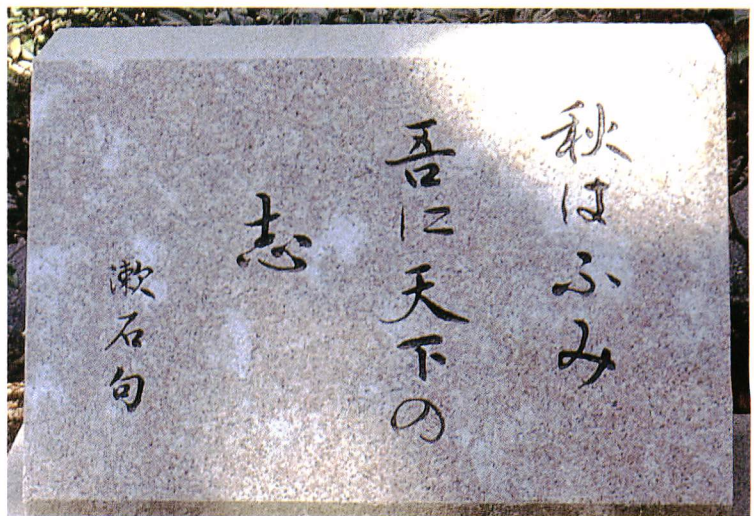 秋はふみ
吾に天下の
志
漱石句